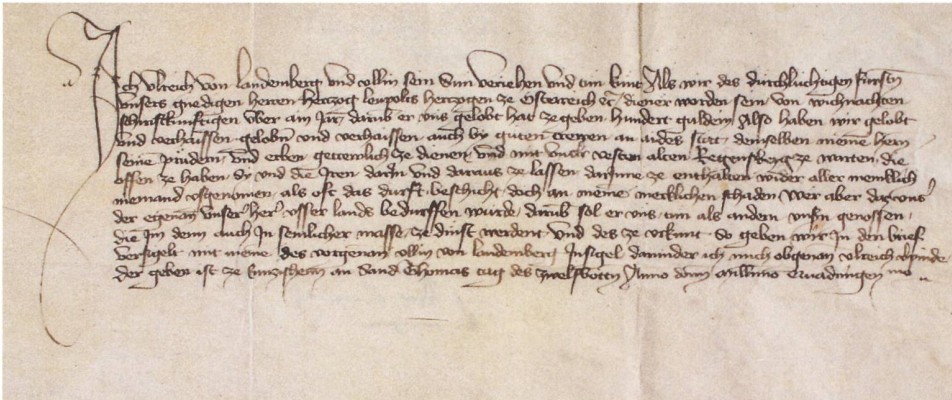 Ich Ulreich von Landemberg und Ullin sein Sun veriehen und tun kunt Als wir des durchluchtigen fursten
unsers gnedigen herren hertzog leupolts hertzogen ze Osterreich etc. diener worden sein von wichnachten
schiristkunftigen uber ain Jar darub er uns gelobt hat ze geben hundert guldein Also haben wir gelobt
und verhaissen geloben und verhaissen auch by guten trewen an aides stat demselben meinem hern
seinen prudern und erben getrewlich ze dienen und mit unsrer vesten alten Regensberg ze warten die
offen ze haben sy und die Iren darin und daraus ze lassen darinne ze enthalten wider aller menklich
niemand usgenomen als oft das durft beschicht doch an meinen merklichen schaden Wer aber daz uns
der egenant unser her usser lands bedurffen wurde darub sol er uns tun als andern unsern genossen
die Im denn auch In semlicher masse ze dinst werdent und des ze urkunt So geben wir In den brief
versigelt mit meinem des vorgenanten Ullin von Landemberg Insigel darunder ich mich obgenant Ulreich
der geben ist ze Ensisheim an Sand Thomas tag des zwelfbotten Anno domini millesimo